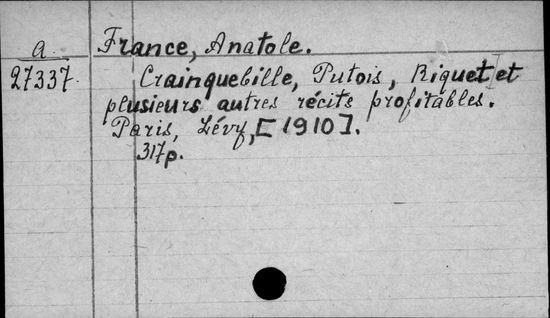 a France, Anatole.
27337. Crainquebille, Putois, Riquet et
plusieurs autres récits profitables.
Paris, Lévy, [1910].
317p.